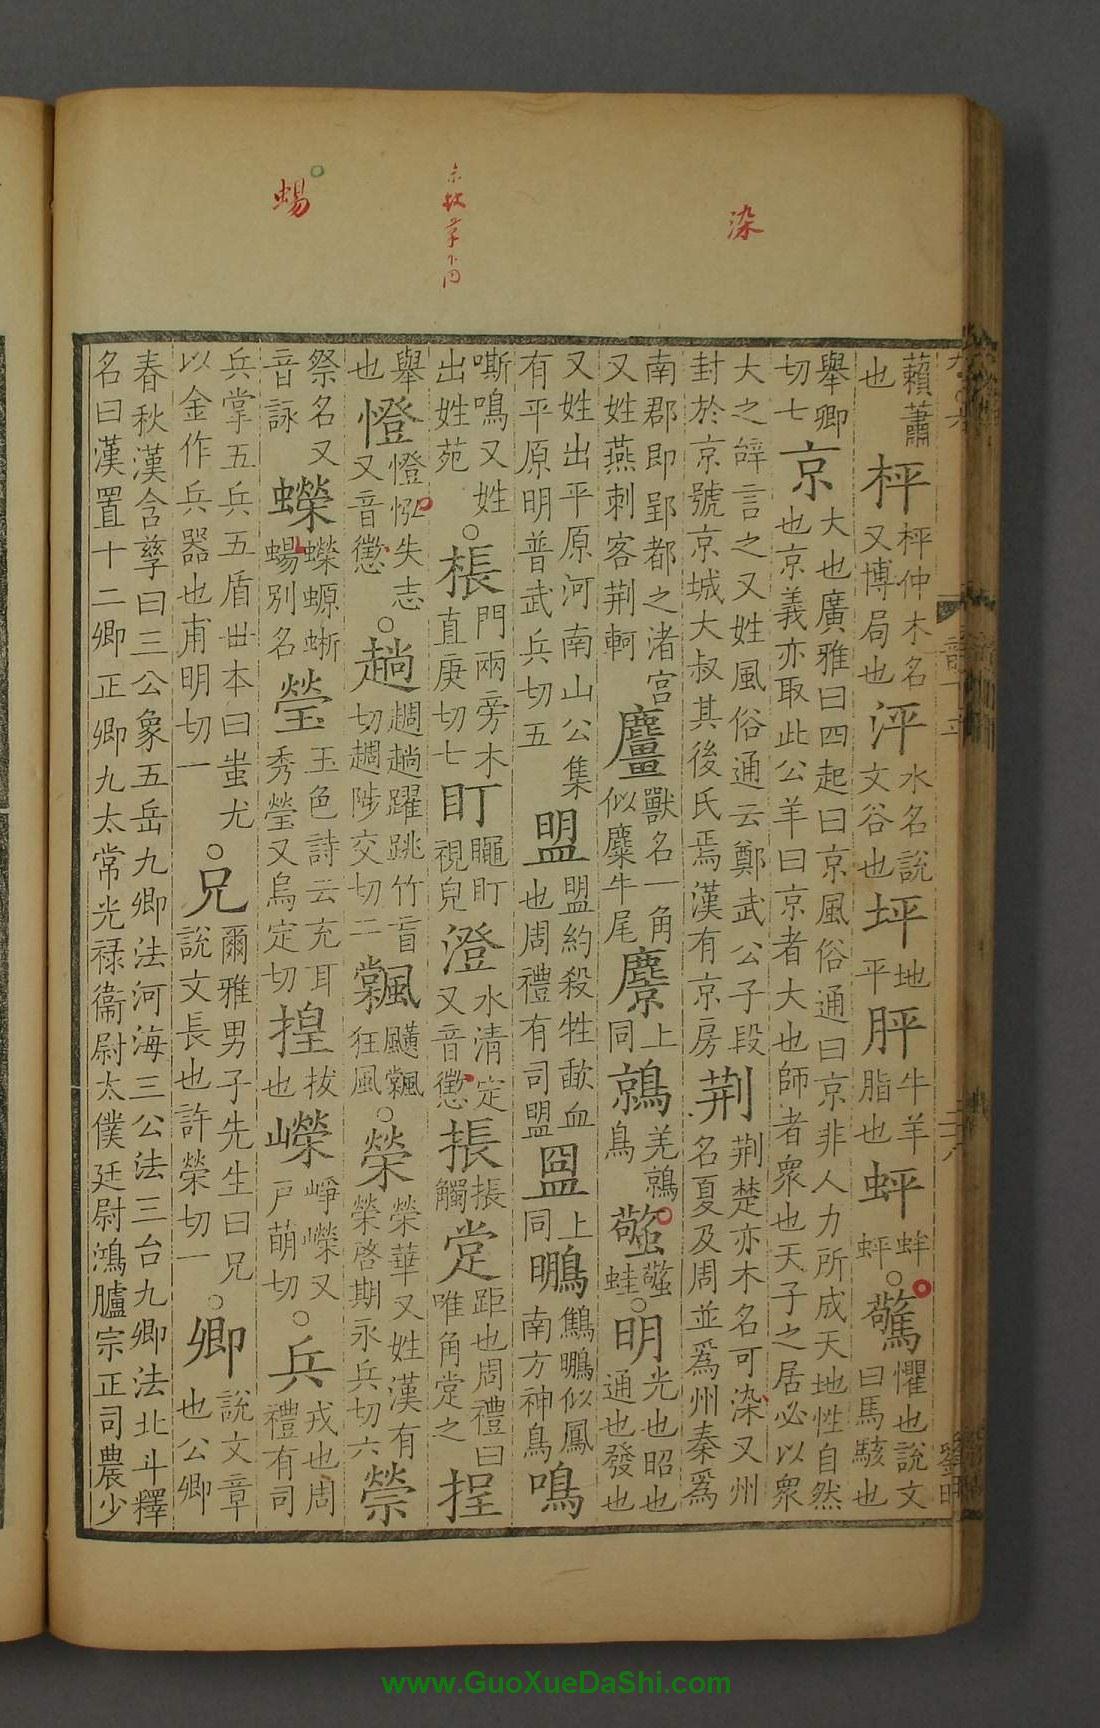 蜴
染
賴蕭也枰枰仲木名又博局也泙水名說文谷也坪地平胓牛羊脂也蚲蚌蚲○驚懼也說文曰馬駭也
舉卿切七京大也廣雅曰四起曰京風俗通曰京非人力所成天地性自然也京義亦取此公羊曰京者大也師者衆也天子之居必以衆
大之辝言之又姓風俗通云鄭武公子段封於京號京城大叔其後氏焉漢有京房荆荆楚亦木名可染又州名夏及周並爲州秦爲
南郡即郢都之渚宮又姓燕刺客荆軻麠獸名一角似麋牛尾麖上同鶁羌鶁鳥蟼蟼蛙○明光也昭也通也發也
又姓出平原河南山公集有平原明普武兵切五盟盟約殺牲歃血也周禮有司盟䀄上同鸍鷦䳟似鳳南方神鳥鳴
嘶鳴又姓出姓苑○棖門兩旁木直庚切七盯䁎盯視皃澄水清定又音懲掁掁觸定距也周禮曰唯角定之捏
舉也憕憕㤌失志又音懲○趟趟趟躍跳竹盲切趟陟交切二䬺䬖䬺狂風○榮榮華又姓漢有榮啓期永兵切六禜
祭名又音詠蠑蠑螈蜥蜴別名瑩玉色詩云充耳秀瑩又烏定切揘拔也嶸崢嶸又戸萌切○兵戎也周禮有司
兵掌五兵五盾丗本曰蚩尤以金作兵器也甫明切一○兄爾雅男子先生曰兄說文長也許榮切一○卿說文章也公卿
春秋漢含孳曰三公象五岳九卿法河海三公法三台九卿法北斗釋名曰漢置十二卿正卿九太常光禄衞尉太僕廷尉鴻臚宗正司農少
www.GuoXueDaShi.com